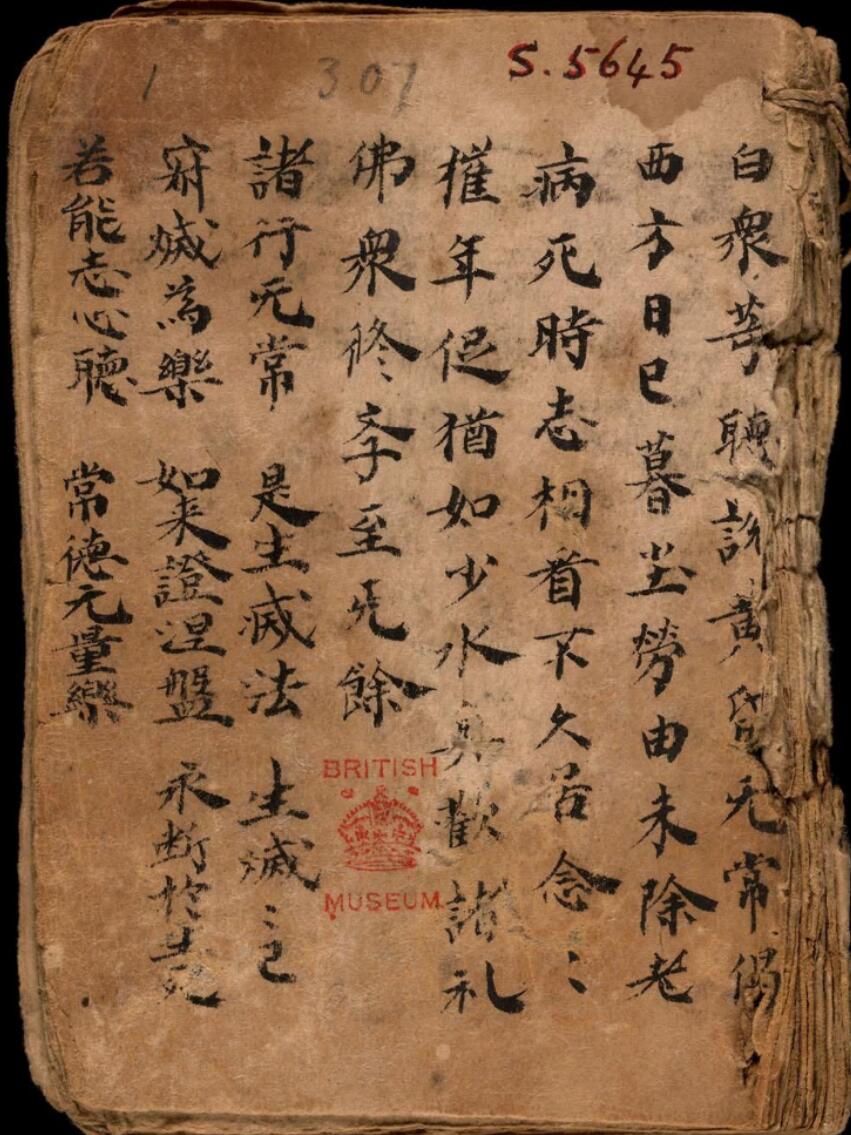 1 307 S.5645
白衆等聽說黃昏无常偈
西方日已暮尘勞由未除老
病死時志相看不久居念〻
摧年促猶如少水魚歡諸礼
佛衆修斈至无餘
諸行无常 是生滅法 生滅〻已
寂滅為樂 如来證涅盤 永断於生死
若能志心聽 常徳无量樂
BRITISH
MUSEUM